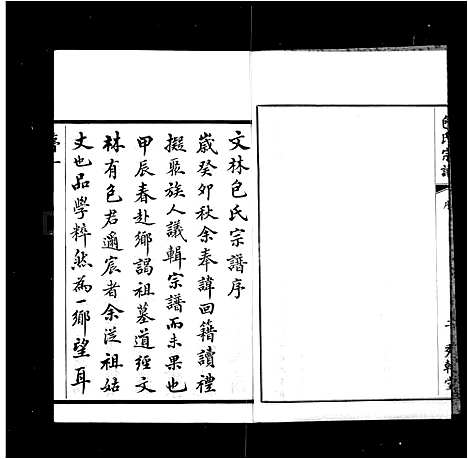 包氏宗譜
文林包氏宗譜序
歲癸卯秋余奉諱回籍讀禮
擬聚族人議輯宗譜而未果也
甲辰春赴鄉謁祖墓道經文
林有包君邇宸者余從祖姑
丈也品學粹然為一鄉望耳
序一